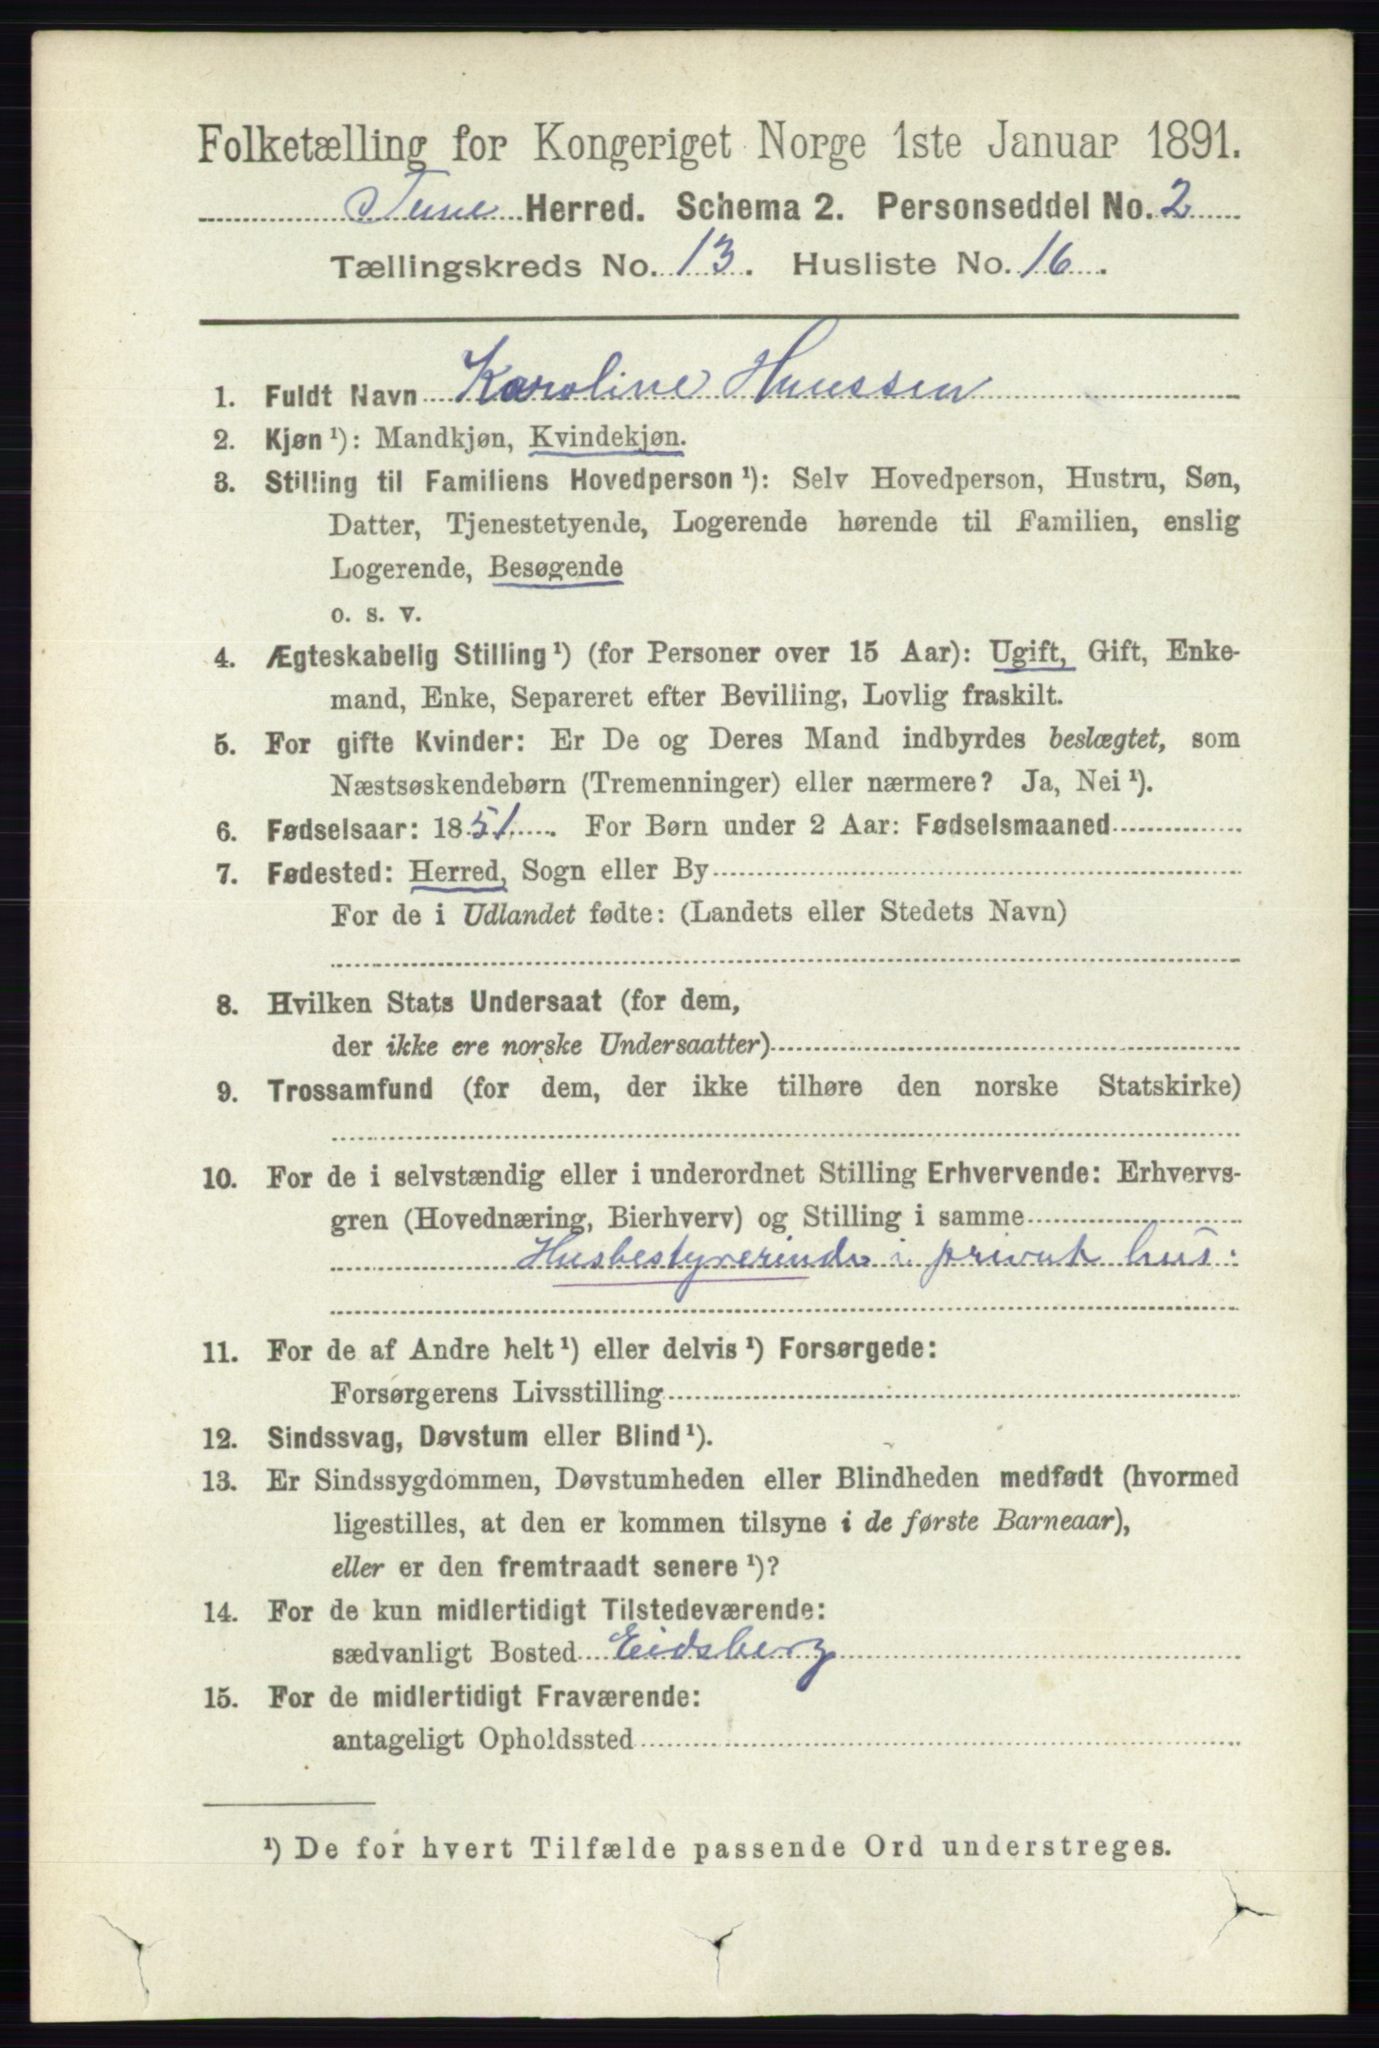 Folketælling for Kongeriget Norge 1ste Januar 1891.
Tune Herred. Schema 2. Personseddel No. 2
Tællingskreds No. 13. Husliste No. 16.
1. Fuldt Navn Karoline Huussen
2. Kjøn¹): Mandkjøn, Kvindekjøn.
3. Stilling til Familiens Hovedperson¹): Selv Hovedperson, Hustru, Søn,
Datter, Tjenestetyende, Logerende hørende til Familien, enslig
Logerende, Besøgende
o. s. v.
4. Ægteskabelig Stilling¹) (for Personer over 15 Aar): Ugift, Gift, Enke-
mand, Enke, Separeret efter Bevilling, Lovlig fraskilt.
5. For gifte Kvinder: Er De og Deres Mand indbyrdes beslægtet, som
Næstsøskendebørn (Tremenninger) eller nærmere? Ja, Nei¹).
6. Fødselsaar: 1851. For Børn under 2 Aar: Fødselsmaaned
7. Fødested: Herred, Sogn eller By
For de i Udlandet fødte: (Landets eller Stedets Navn)
8. Hvilken Stats Undersaat (for dem,
der ikke ere norske Undersaatter)
9. Trossamfund (for dem, der ikke tilhøre den norske Statskirke)
10. For de i selvstændig eller i underordnet Stilling Erhvervende: Erhvervs-
gren (Hovednæring, Bierhverv) og Stilling i samme
Husbestyrerinde i privat hus.
11. For de af Andre helt¹) eller delvis¹) Forsørgede:
Forsørgerens Livsstilling
12. Sindssvag, Døvstum eller Blind¹).
13. Er Sindssygdommen, Døvstumheden eller Blindheden medfødt (hvormed
ligestilles, at den er kommen tilsyne i de første Barneaar),
eller er den fremtraadt senere¹)?
14. For de kun midlertidigt Tilstedeværende:
sædvanligt Bosted Eidsberg
15. For de midlertidigt Fraværende:
antageligt Opholdssted
¹) De for hvert Tilfælde passende Ord understreges.